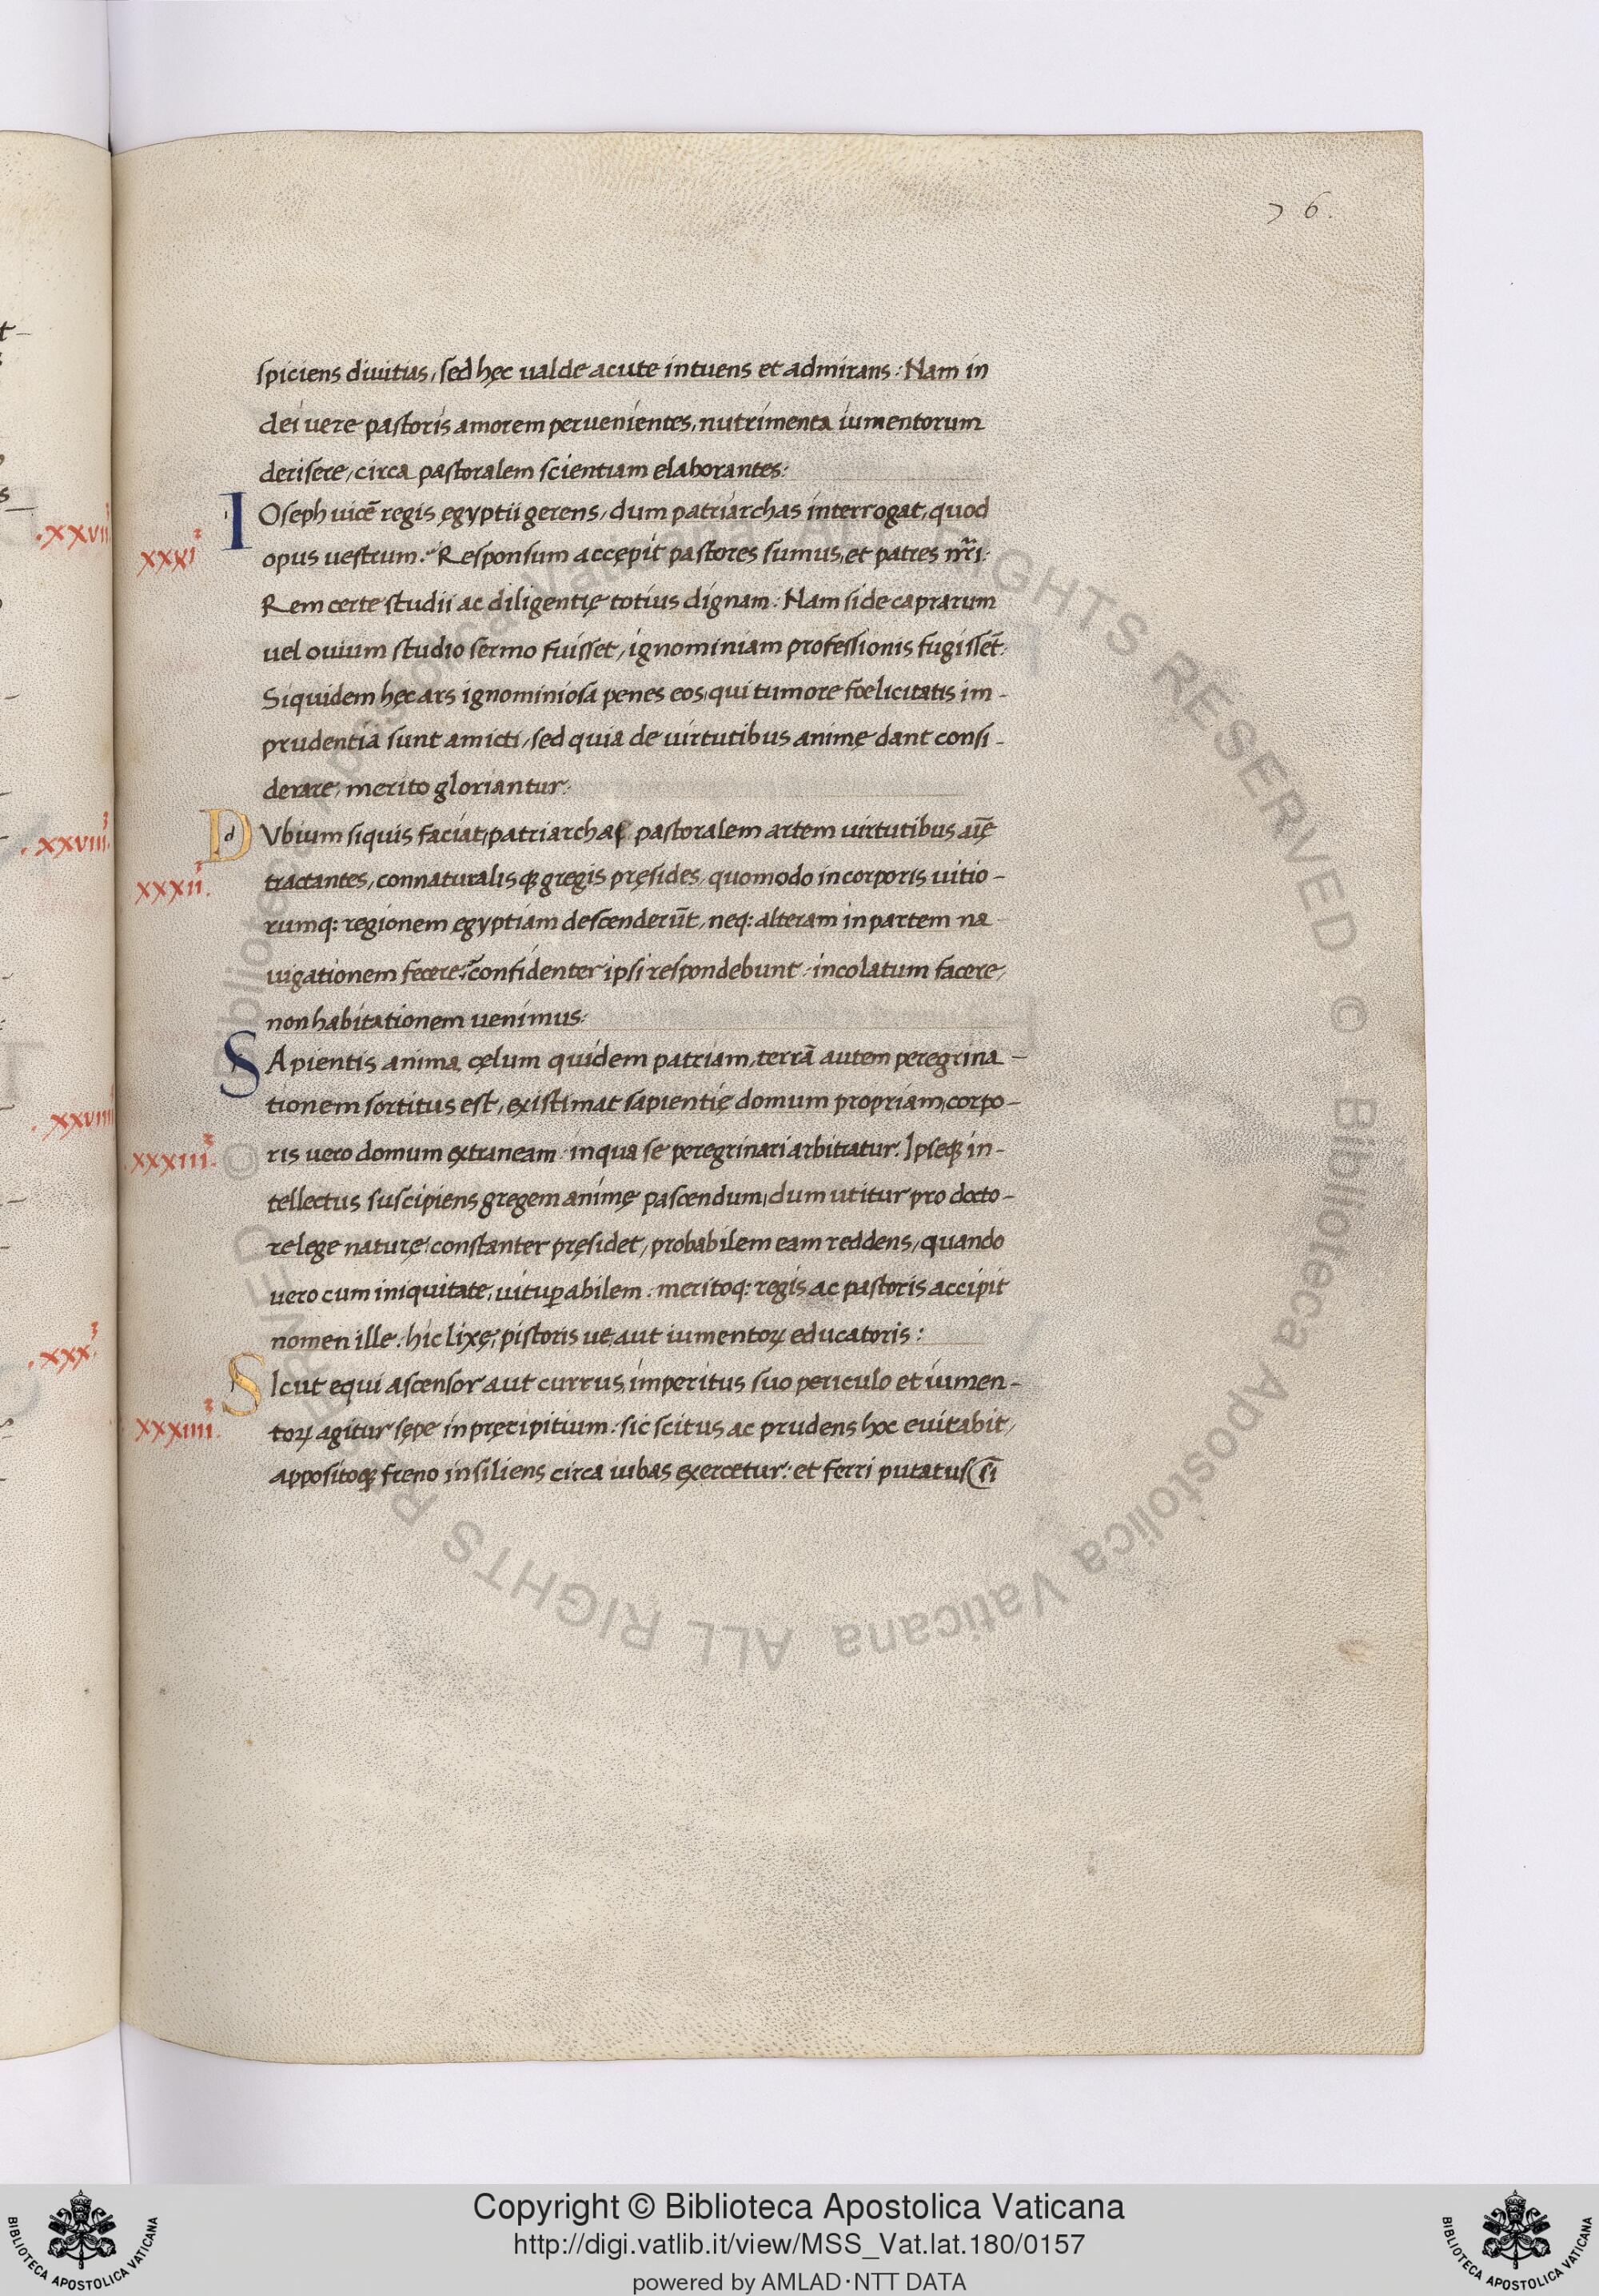 76.
spiciens diuitias, sed hęc ualde acute intuens et admirans: Nam in
dei uere pastoris amorem peruenientes, nutrimenta iumentorum
derisere, circa pastoralem scientiam elaborantes:
IOseph uicē regis ęgyptii gerens, dum patriarchas interrogat, quod
.XXVII
XXXI
opus uestrum. Responsum accępit pastores sumus, et patres nr̄i:
Rem certe studii ac diligentię totius dignam: Nam si de caprarum
uel ouium studio sermo fuisset, ignominiam professionis fugissēt:
Siquidem hęc ars ignominiosa penes eos, qui tumore foelicitatis im-
prudentia sunt amicti, sed quia de uirtutibus animę dant consi-
derare, merito gloriantur:
DVbium siquis faciat, patriarchas pastoralem artem uirtutibus aīę
.XXVIII.
XXXII.
tractantes, connaturalisqꝫ gregis pręsides, quomodo in corporis uitio-
rumq: regionem ęgyptiam descenderūt, neq: alteram in partem na-
uigationem fecere: confidenter ipsi respondebunt: incolatum facere,
non habitationem uenimus:
SApientis anima cęlum quidem patriam, terrā autem peregrina-
tionem sortitus est, existimat sapientię domum propriam, corpo-
.XXVIIII
XXXIII.
ris uero domum extraneam in qua se peregrinari arbitratur. Ipseqꝫ in-
tellectus suscipiens gregem animę pascendum, dum utitur pro docto-
re lege naturę: constanter pręsidet, probabilem eam reddens, quando
uero cum iniquitate, uituꝑabilem: meritoq: regis ac pastoris accipit
nomen ille: hic lixę, pistoris ue, aut iumentoꝝ educatoris:
.XXX.
SIcut equi ascensor aut currus, imperitus suo periculo et iumen-
XXXIIII.
toꝝ agitur sępe in pręcipitium: sic scitus ac prudens hoc euitabit,
appositoqꝫ freno insiliens circa iubas exercetur: et ferri putatus (si
Copyright © Biblioteca Apostolica Vaticana
http://digi.vatlib.it/view/MSS_Vat.lat.180/0157
powered by AMLAD·NTT DATA
BIBLIOTECA APOSTOLICA VATICANA
BIBLIOTECA APOSTOLICA VATICANA
© Biblioteca Apostolica Vaticana ALL RIGHTS RESERVED © Biblioteca Apostolica Vaticana ALL RIGHTS RESERVED